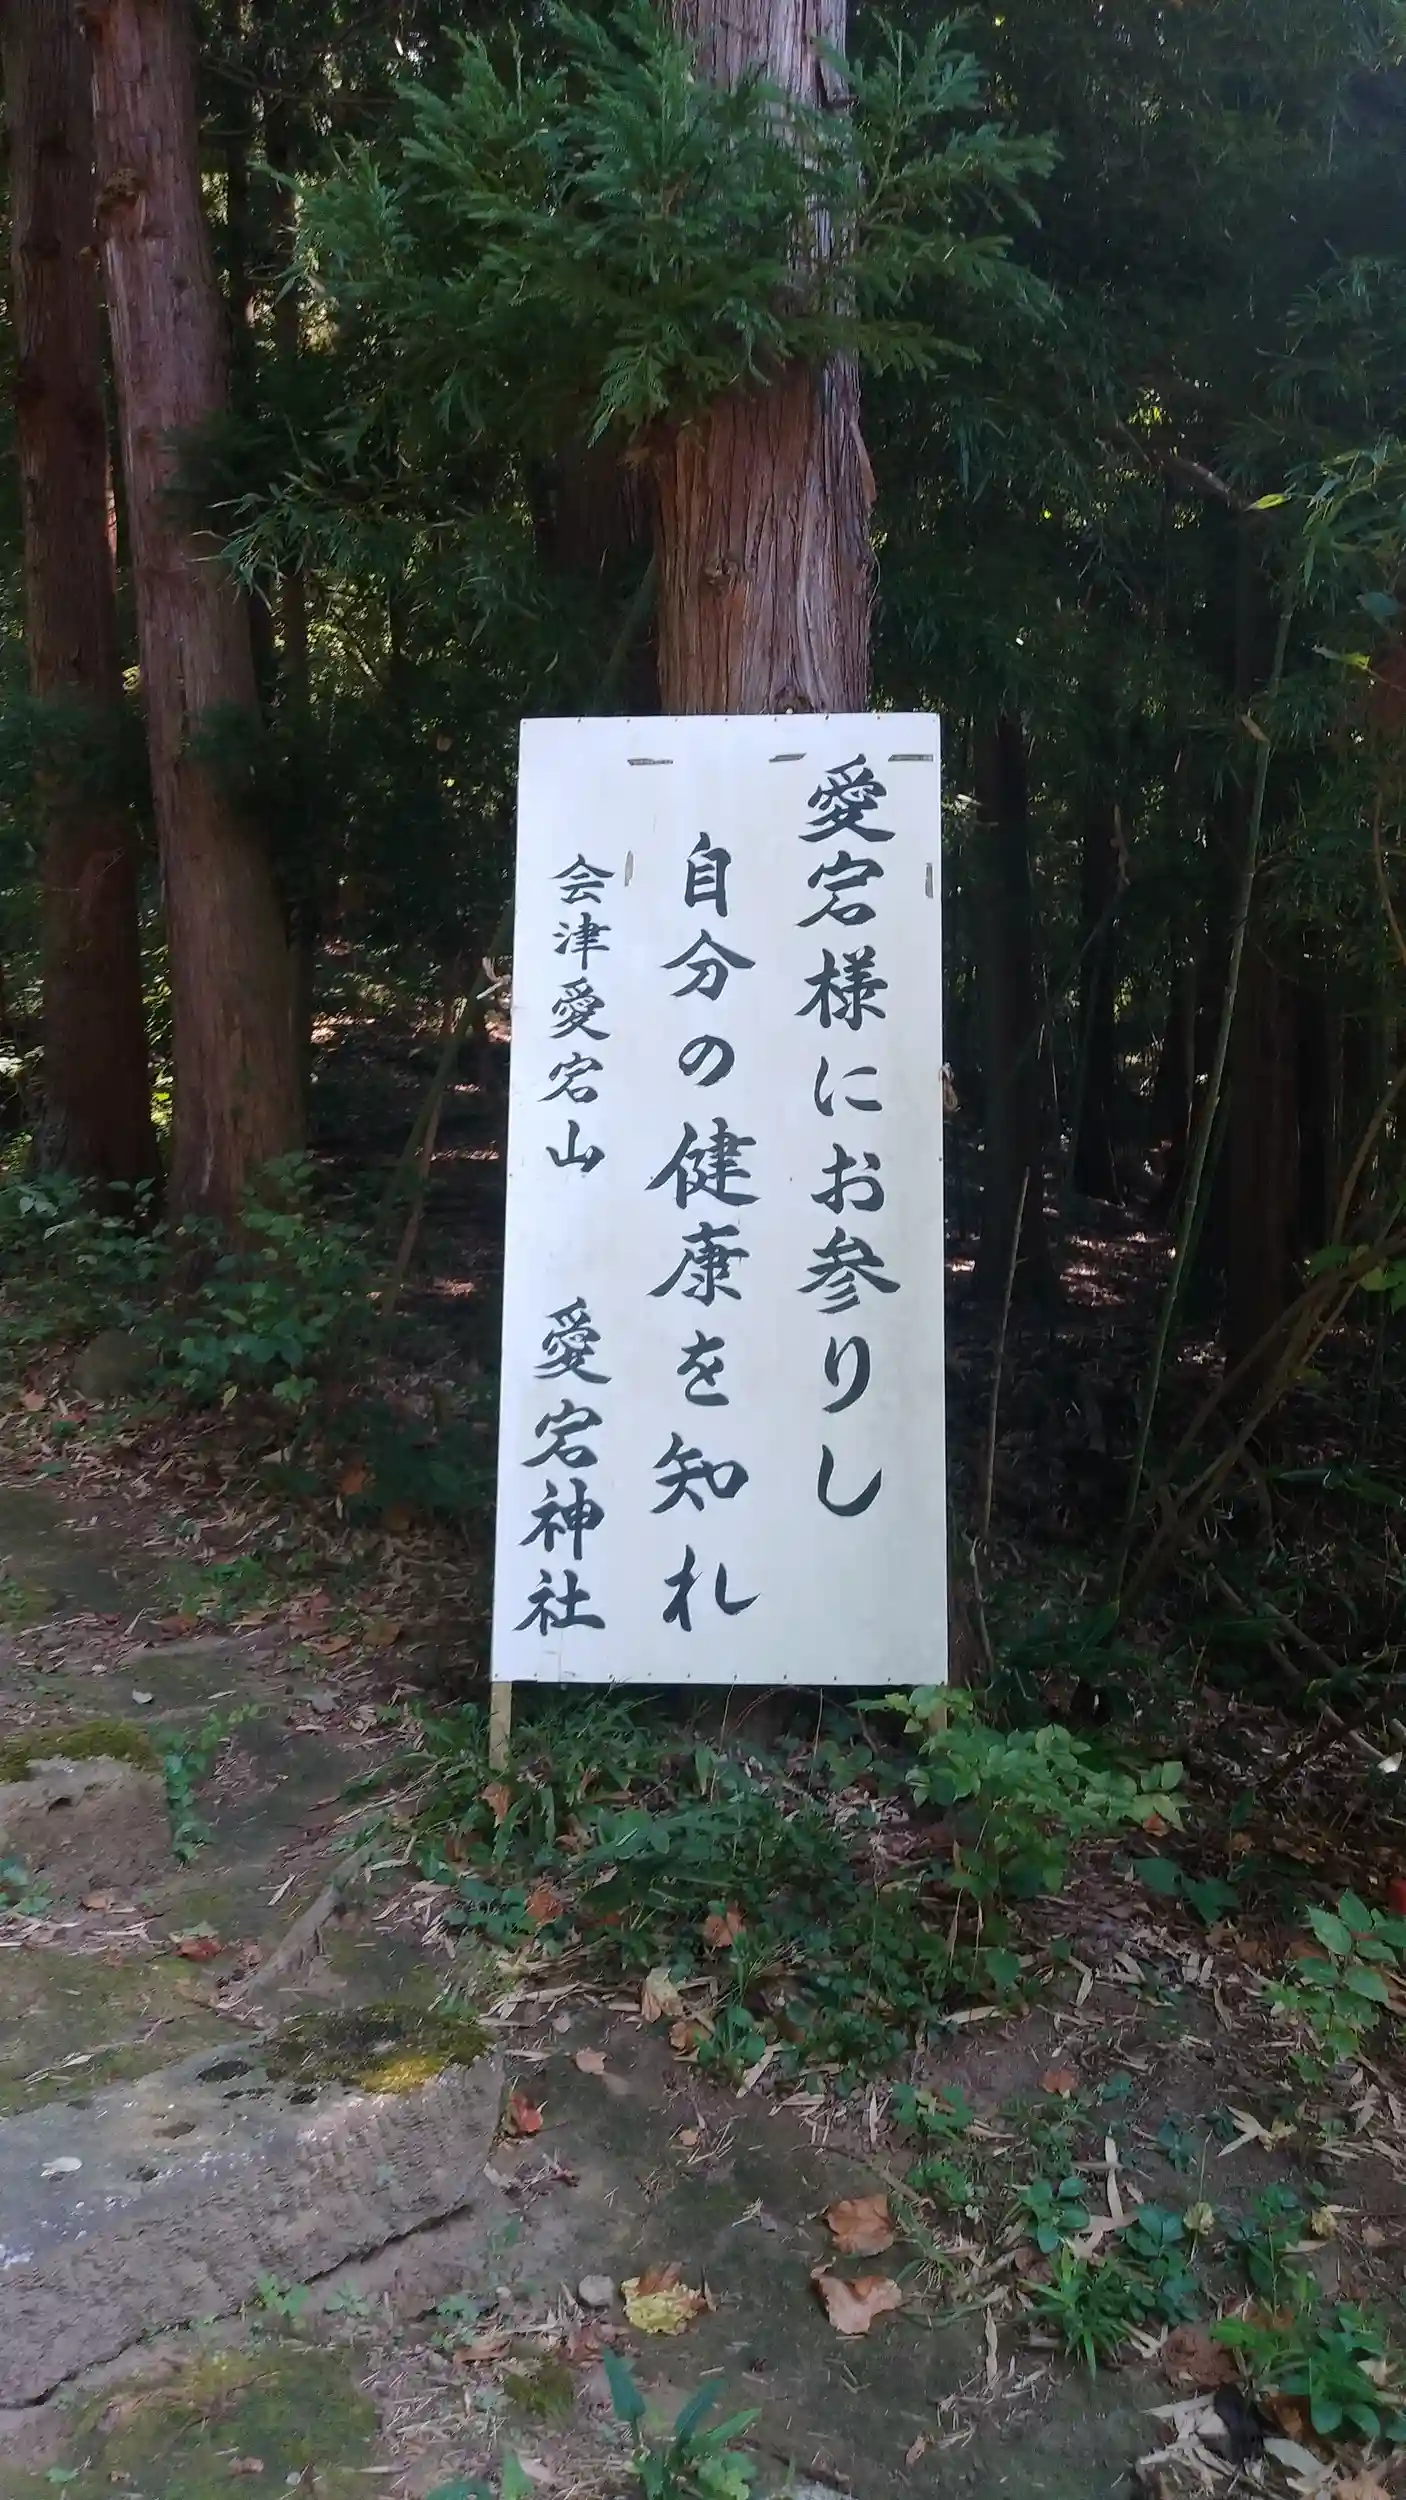 愛宕様にお参りし
自分の健康を知れ
会津愛宕山 愛宕神社